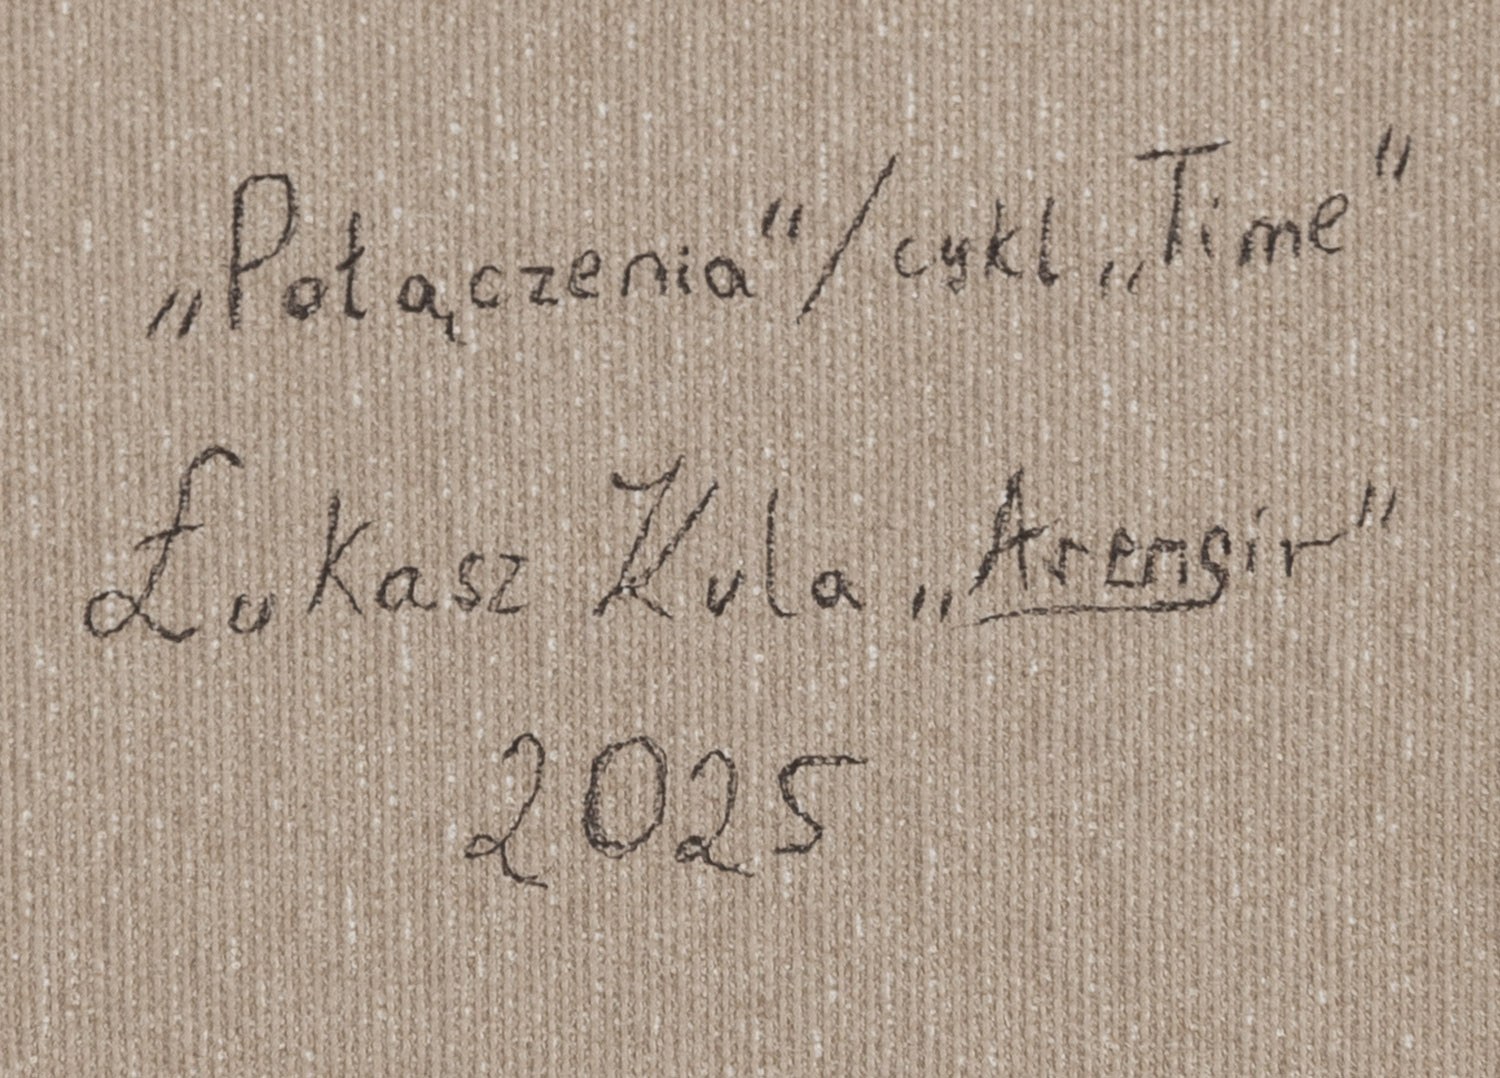 „Połączenia“/cykl „Time“
Łukasz Kula „Arengir“
2025